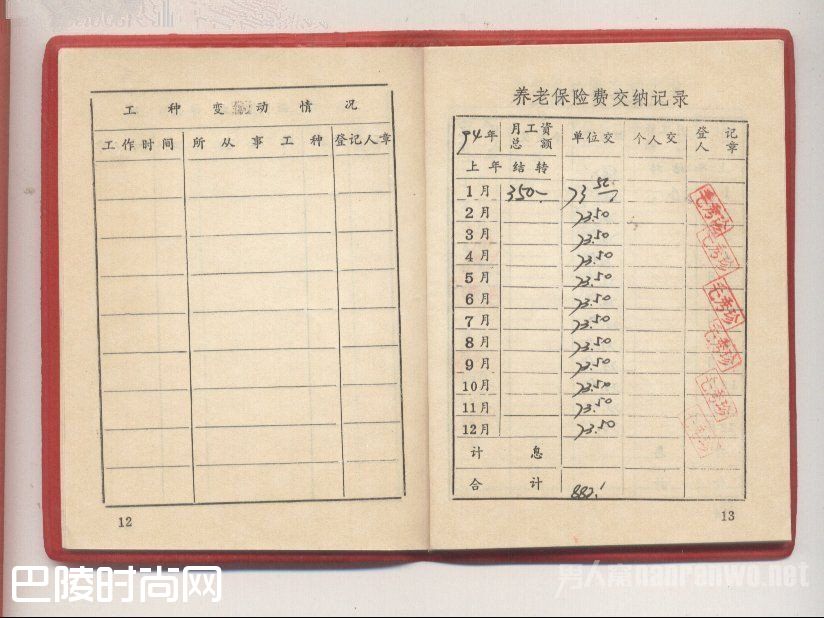 工种变动情况
工作时间 所从事工种 登记人章
12
养老保险费交纳记录
94年 月工资总额 单位交 个人交 登记人章
上年结转
1月 350- 73.50
2月 73.50
3月 73.50
4月 73.50
5月 73.50
6月 73.50
7月 73.50
8月 73.50
9月 73.50
10月 73.50
11月 73.50
12月 73.50
计息
合计 882.-
13
毛秀珍
毛秀珍
毛秀珍
毛秀珍
毛秀珍
巴陵时尚网
男人窝nanrenwo.net